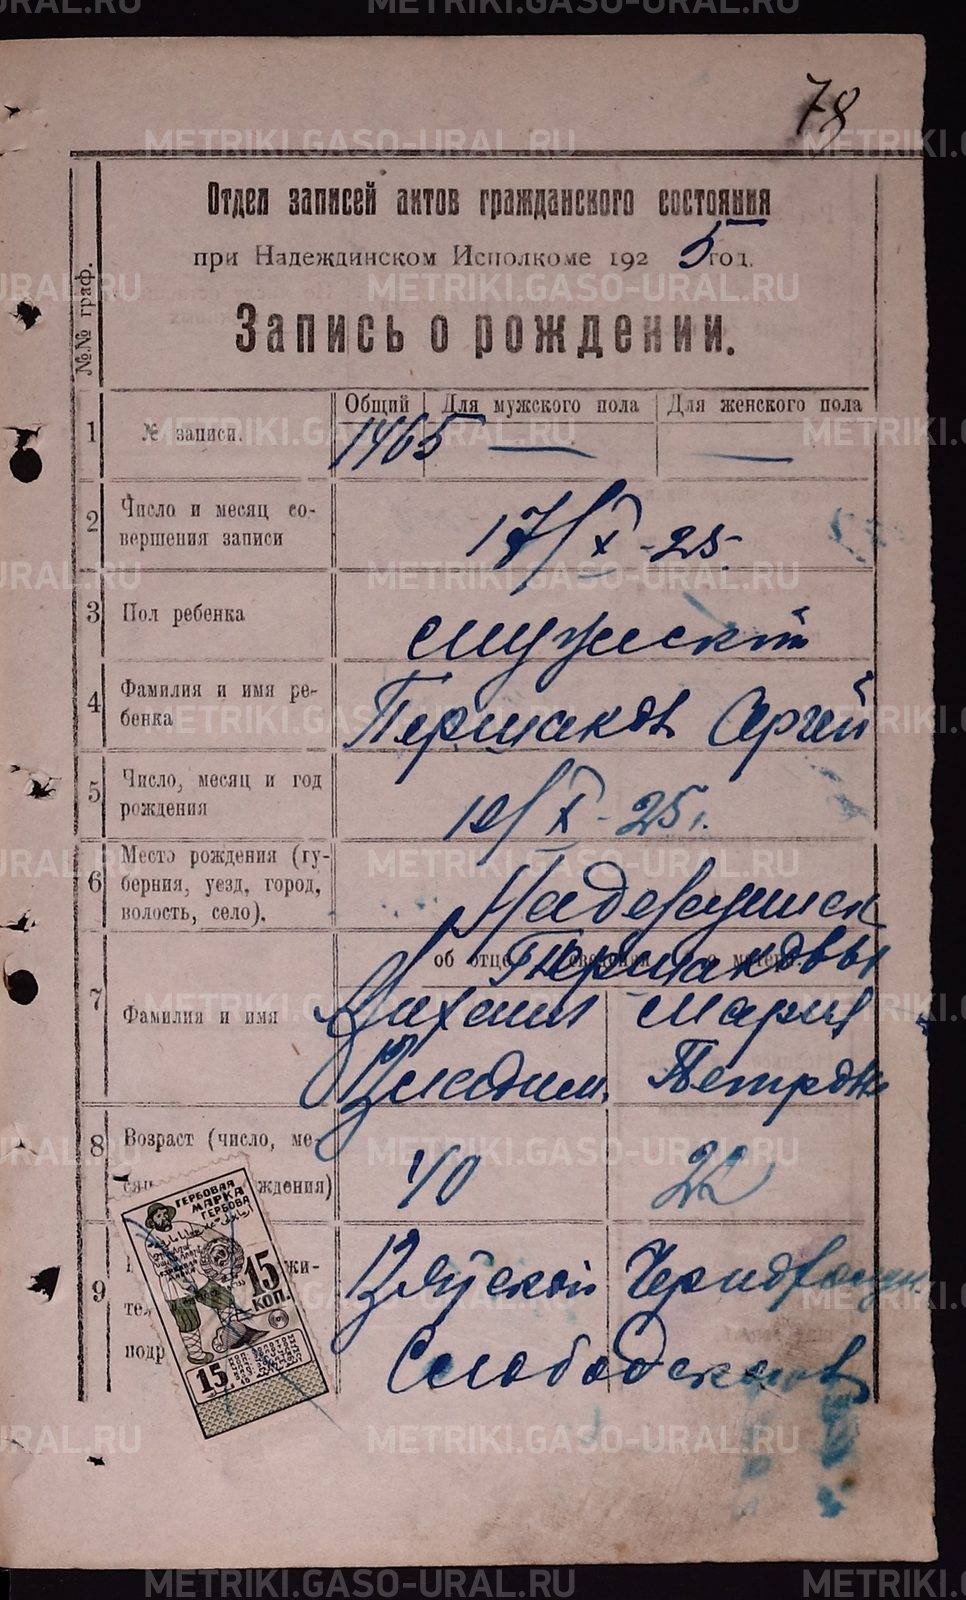 78
Отдел записей актов гражданского состояния
при Надеждинском Исполкоме 1925 год.
Запись о рождении.
№№ граф.
Общий Для мужского пола Для женского пола
1 № записи. 1465 — —
2 Число и месяц со-
вершения записи 17/X-25.
3 Пол ребенка мужской
4 Фамилия и имя ре-
бенка Першаков Сергей
5 Число, месяц и год
рождения 10/X-25г.
6 Место рождения (гу-
берния, уезд, город,
волость, село). Надеждинск
об отце сведения о матери
Першаковы
7 Фамилия и имя Михаил Мария
Петровн
8 Возраст (число, ме-
ждения) 40 22
9 жи-
Вятской
подр Слободского
ГЕРБОВАЯ
МАРКА
ГЕРБОВА
15
КОП.
15
METRIKI.GASO-URAL.RU